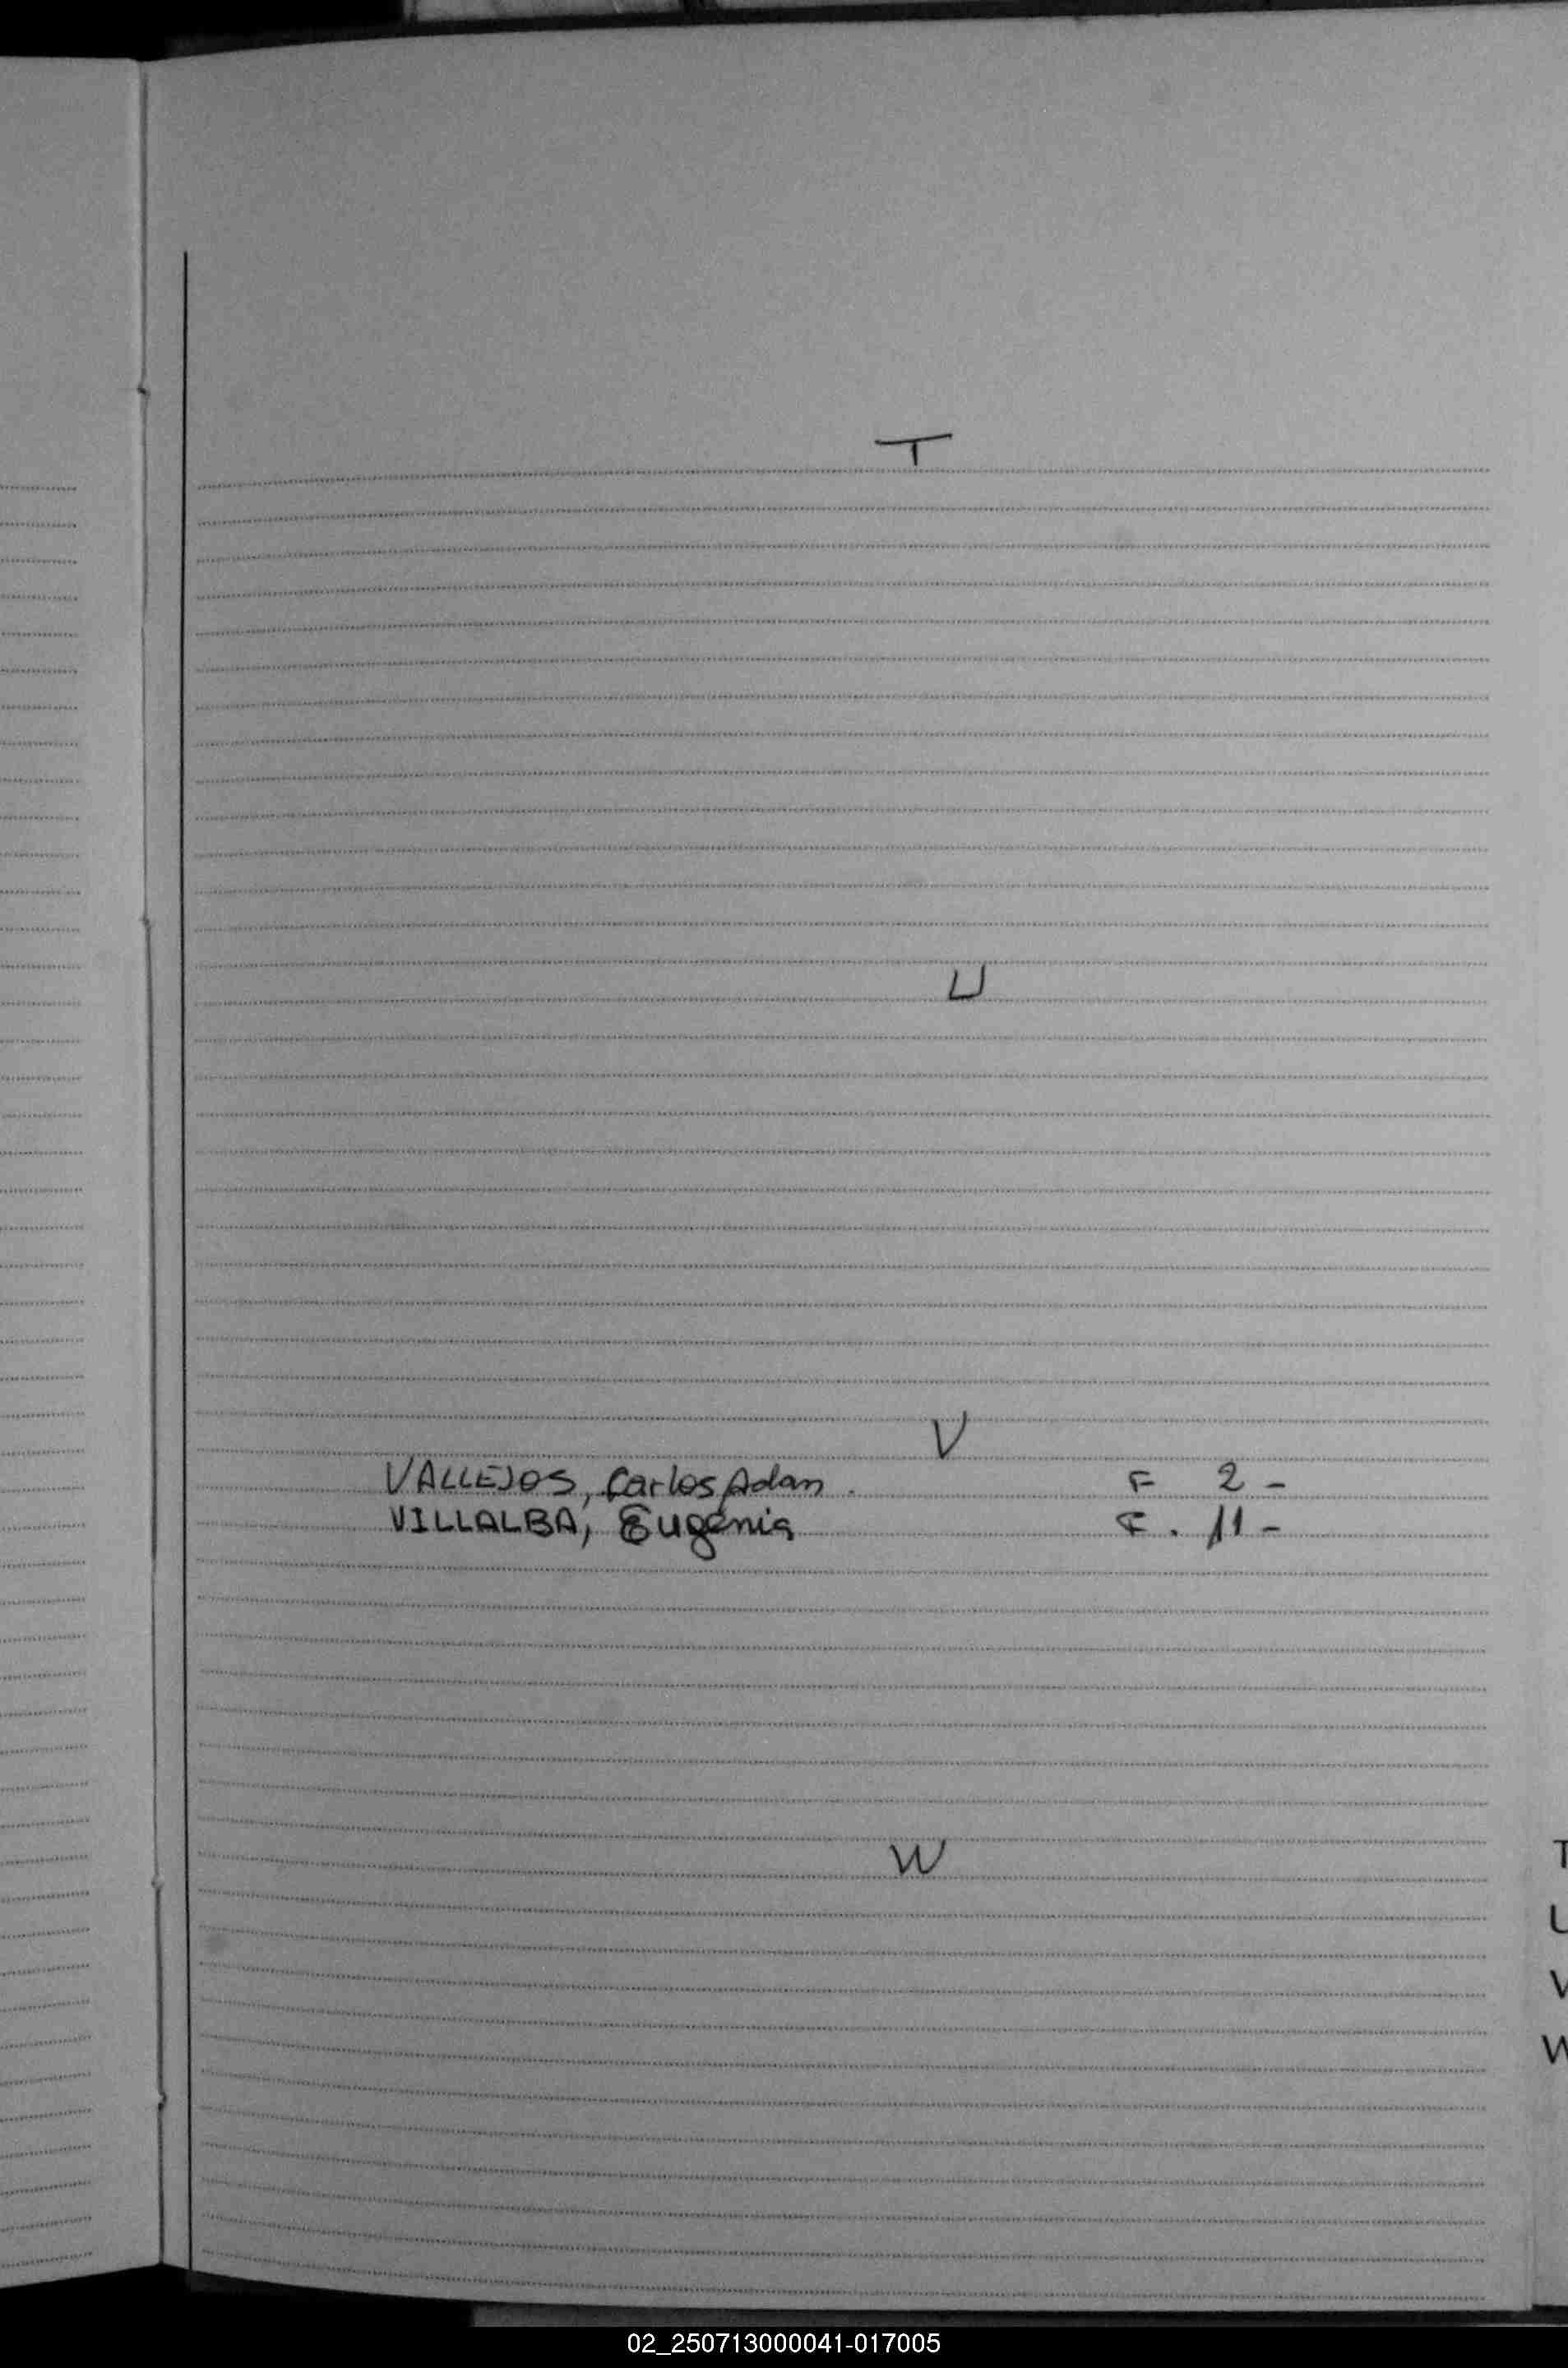 T
U
V
VALLEJOS, Carlos Adan. F 2 -
VILLALBA, Eugenia F. 11 -
W
T
U
V
W
02_250713000041-017005